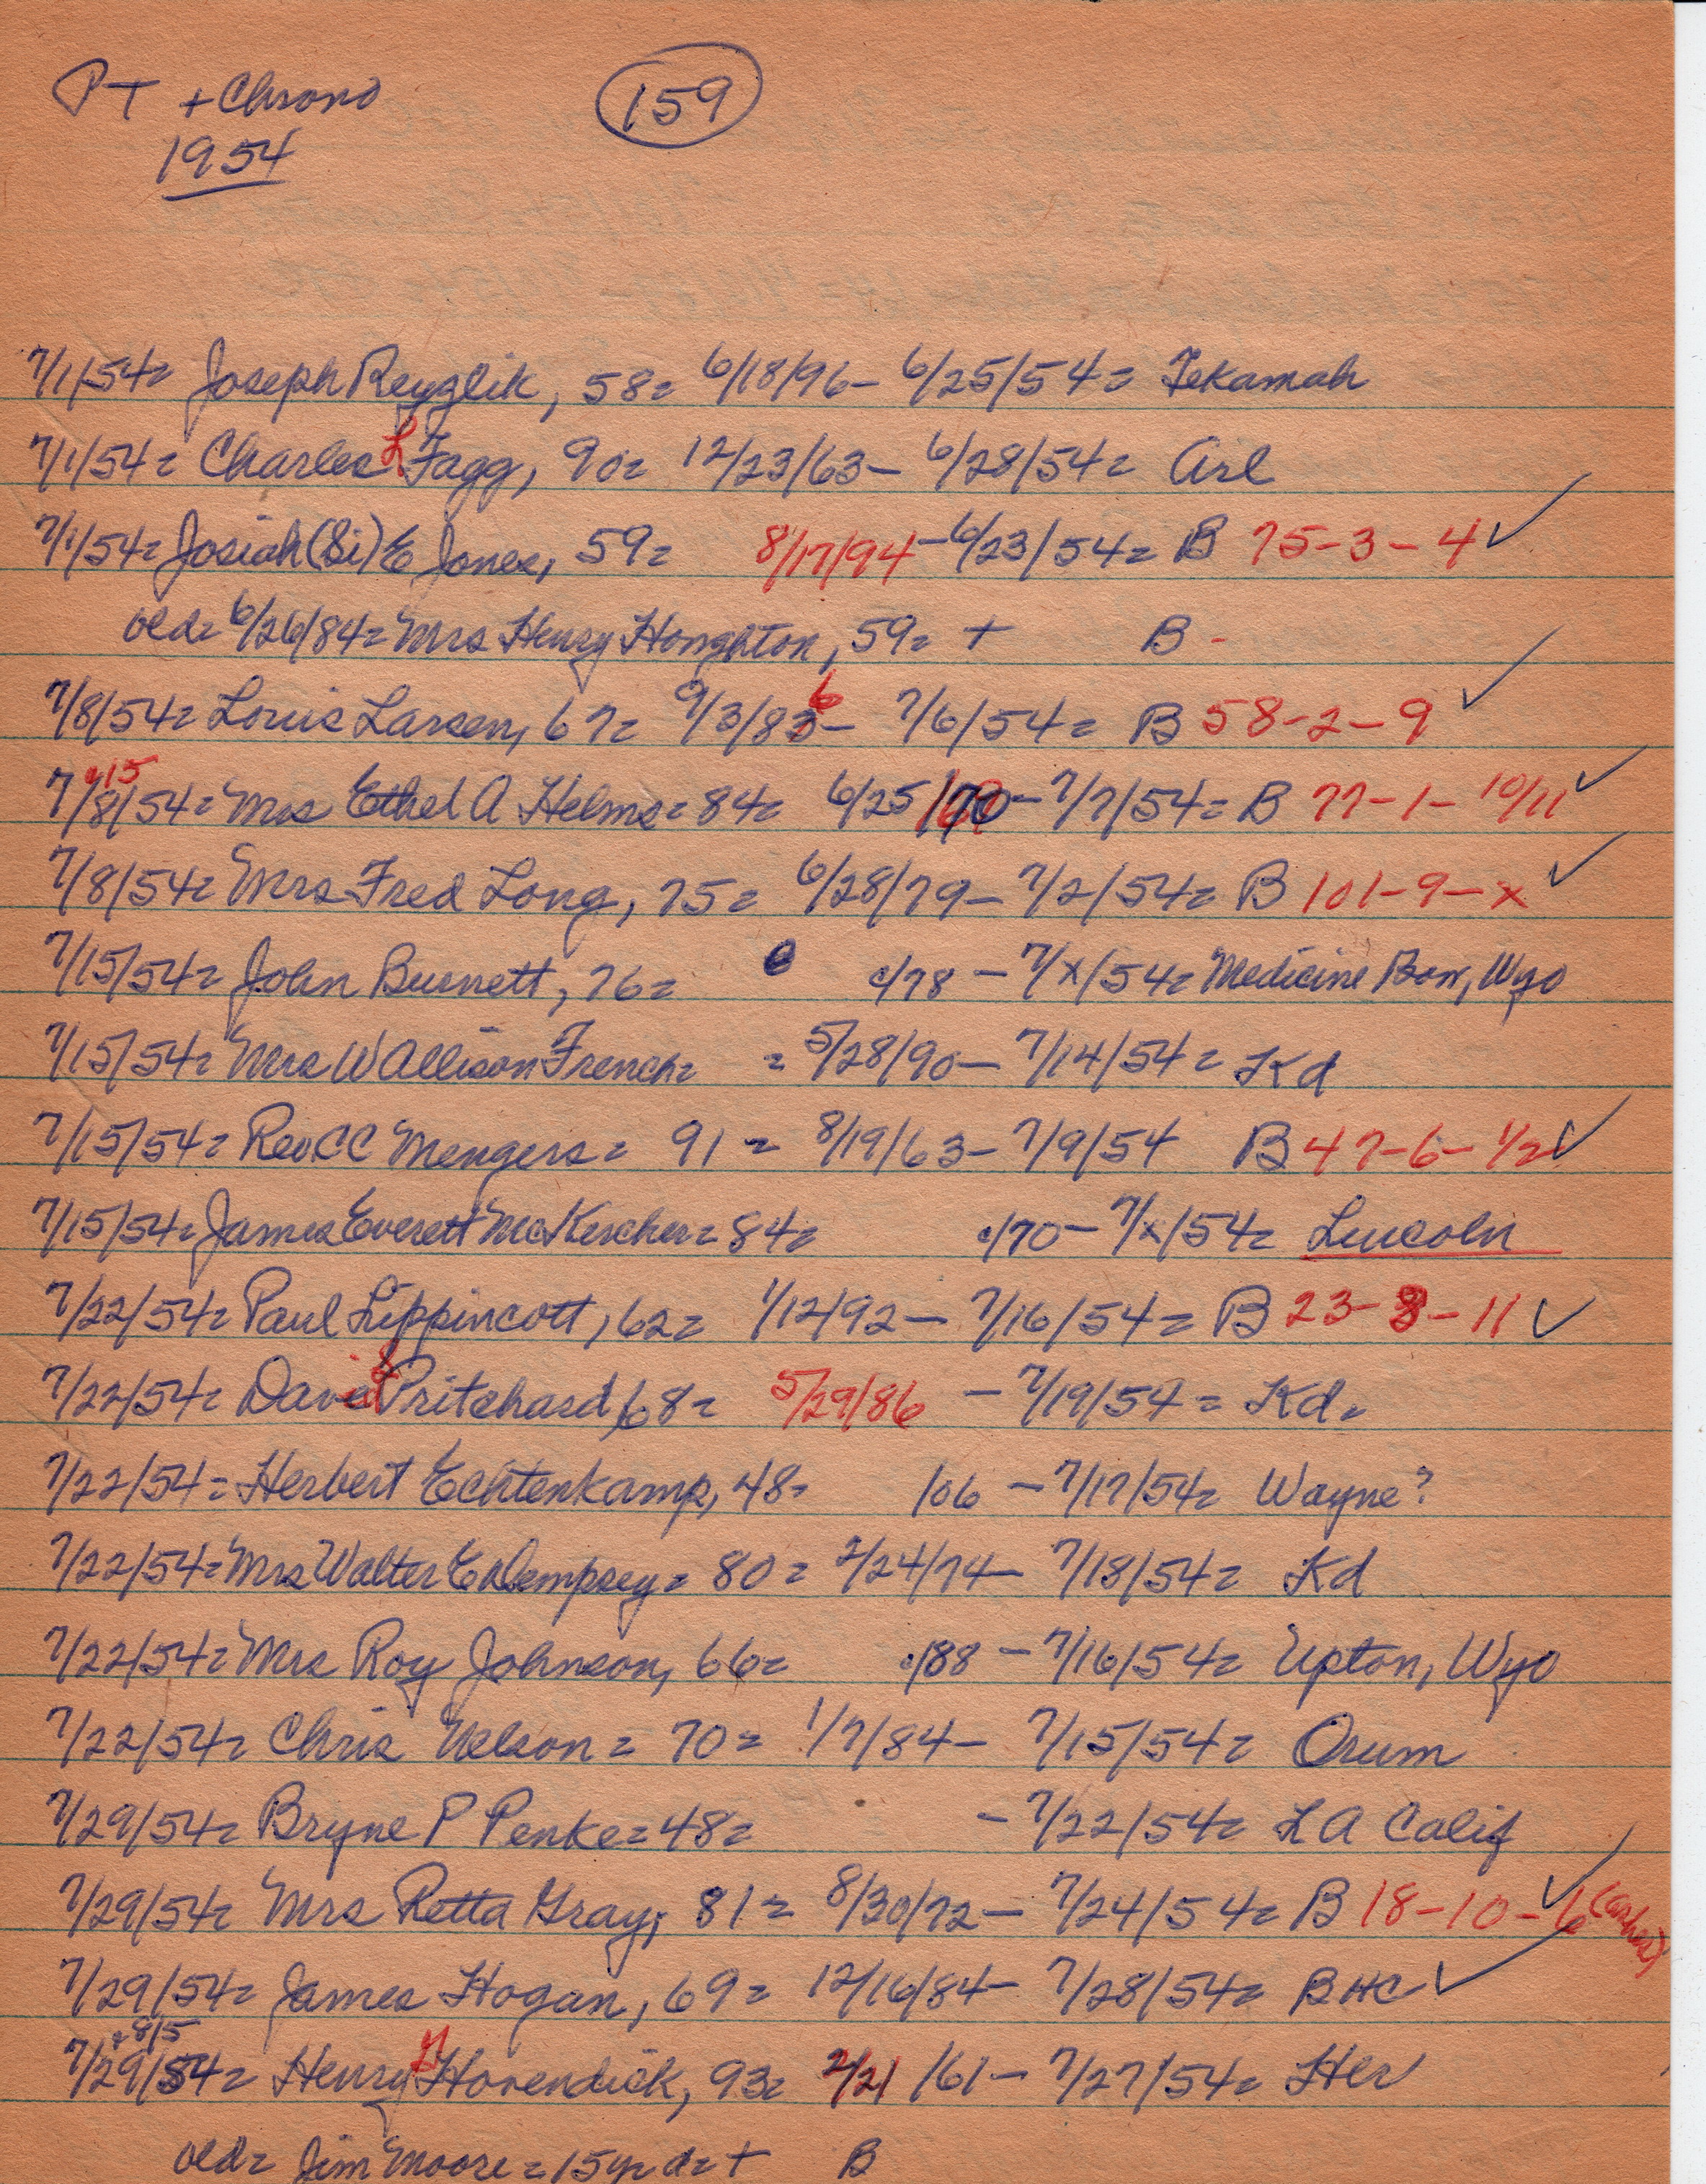 PT + Chrono 159
1954
7/1/54= Joseph Reyzlik, 58= 6/18/96- 6/25/54= Tekamah
7/1/54= Charles L Fagg, 90= 12/23/63- 6/28/54= Arl
7/1/54= Josiah (Si) E Jones, 59= 8/17/94 -6/23/54= B 75-3-4 ✓
old= 6/26/84= Mrs Henry Houghton, 59= + B -
7/8/54= Louis Larsen, 67= 9/3/86- 7/6/54= B 58-2-9 ✓
7/8/54= Mrs Ethel A Helms= 84= 6/25/ - 7/7/54= B 77-1-10/11 ✓
7/8/54= Mrs Fred Long, 75= 6/28/79- 7/2/54= B 101-9-x ✓
7/15/54= John Burnett, 76= c/78 - 7/x/54= Medicine Bow, Wyo
7/15/54= Mrs W Allison French= = 5/28/90- 7/14/54= Kd
7/15/54= Rev CC Mengers= 91 = 8/19/63- 7/9/54 B 47-6-1/2 ✓
7/15/54= James Everett McKercher= 84= c/70- 7/x/54= Lincoln
7/22/54= Paul Lippincott, 62= 1/12/92- 7/16/54= B 23-3-11 ✓
7/22/54= David S Pritchard, 68= 5/29/86 - 7/19/54= Kd.
7/22/54= Herbert Echtenkamp, 48= /06 - 7/17/54= Wayne?
7/22/54= Mrs Walter E Dempsey= 80= 2/24/74- 7/18/54= Kd
7/22/54= Mrs Roy Johnson, 66= c/88 - 7/16/54= Upton, Wyo
7/22/54= Chris Nelson= 70= 1/7/84- 7/15/54= Orum
7/29/54= Bryne P Penke= 48= - 7/22/54= LA Calif
7/29/54= Mrs Retta Gray, 81= 8/30/72- 7/24/54= B 18-10-6 (ashes) ✓
7/29/54= James Hogan, 69= 12/16/84- 7/28/54= B HC ✓
+ 8/5
7/29/54= Henry Hovendick, 93= 2/21/61- 7/27/54= Her
old= Jim Moore= 15y= d= + B